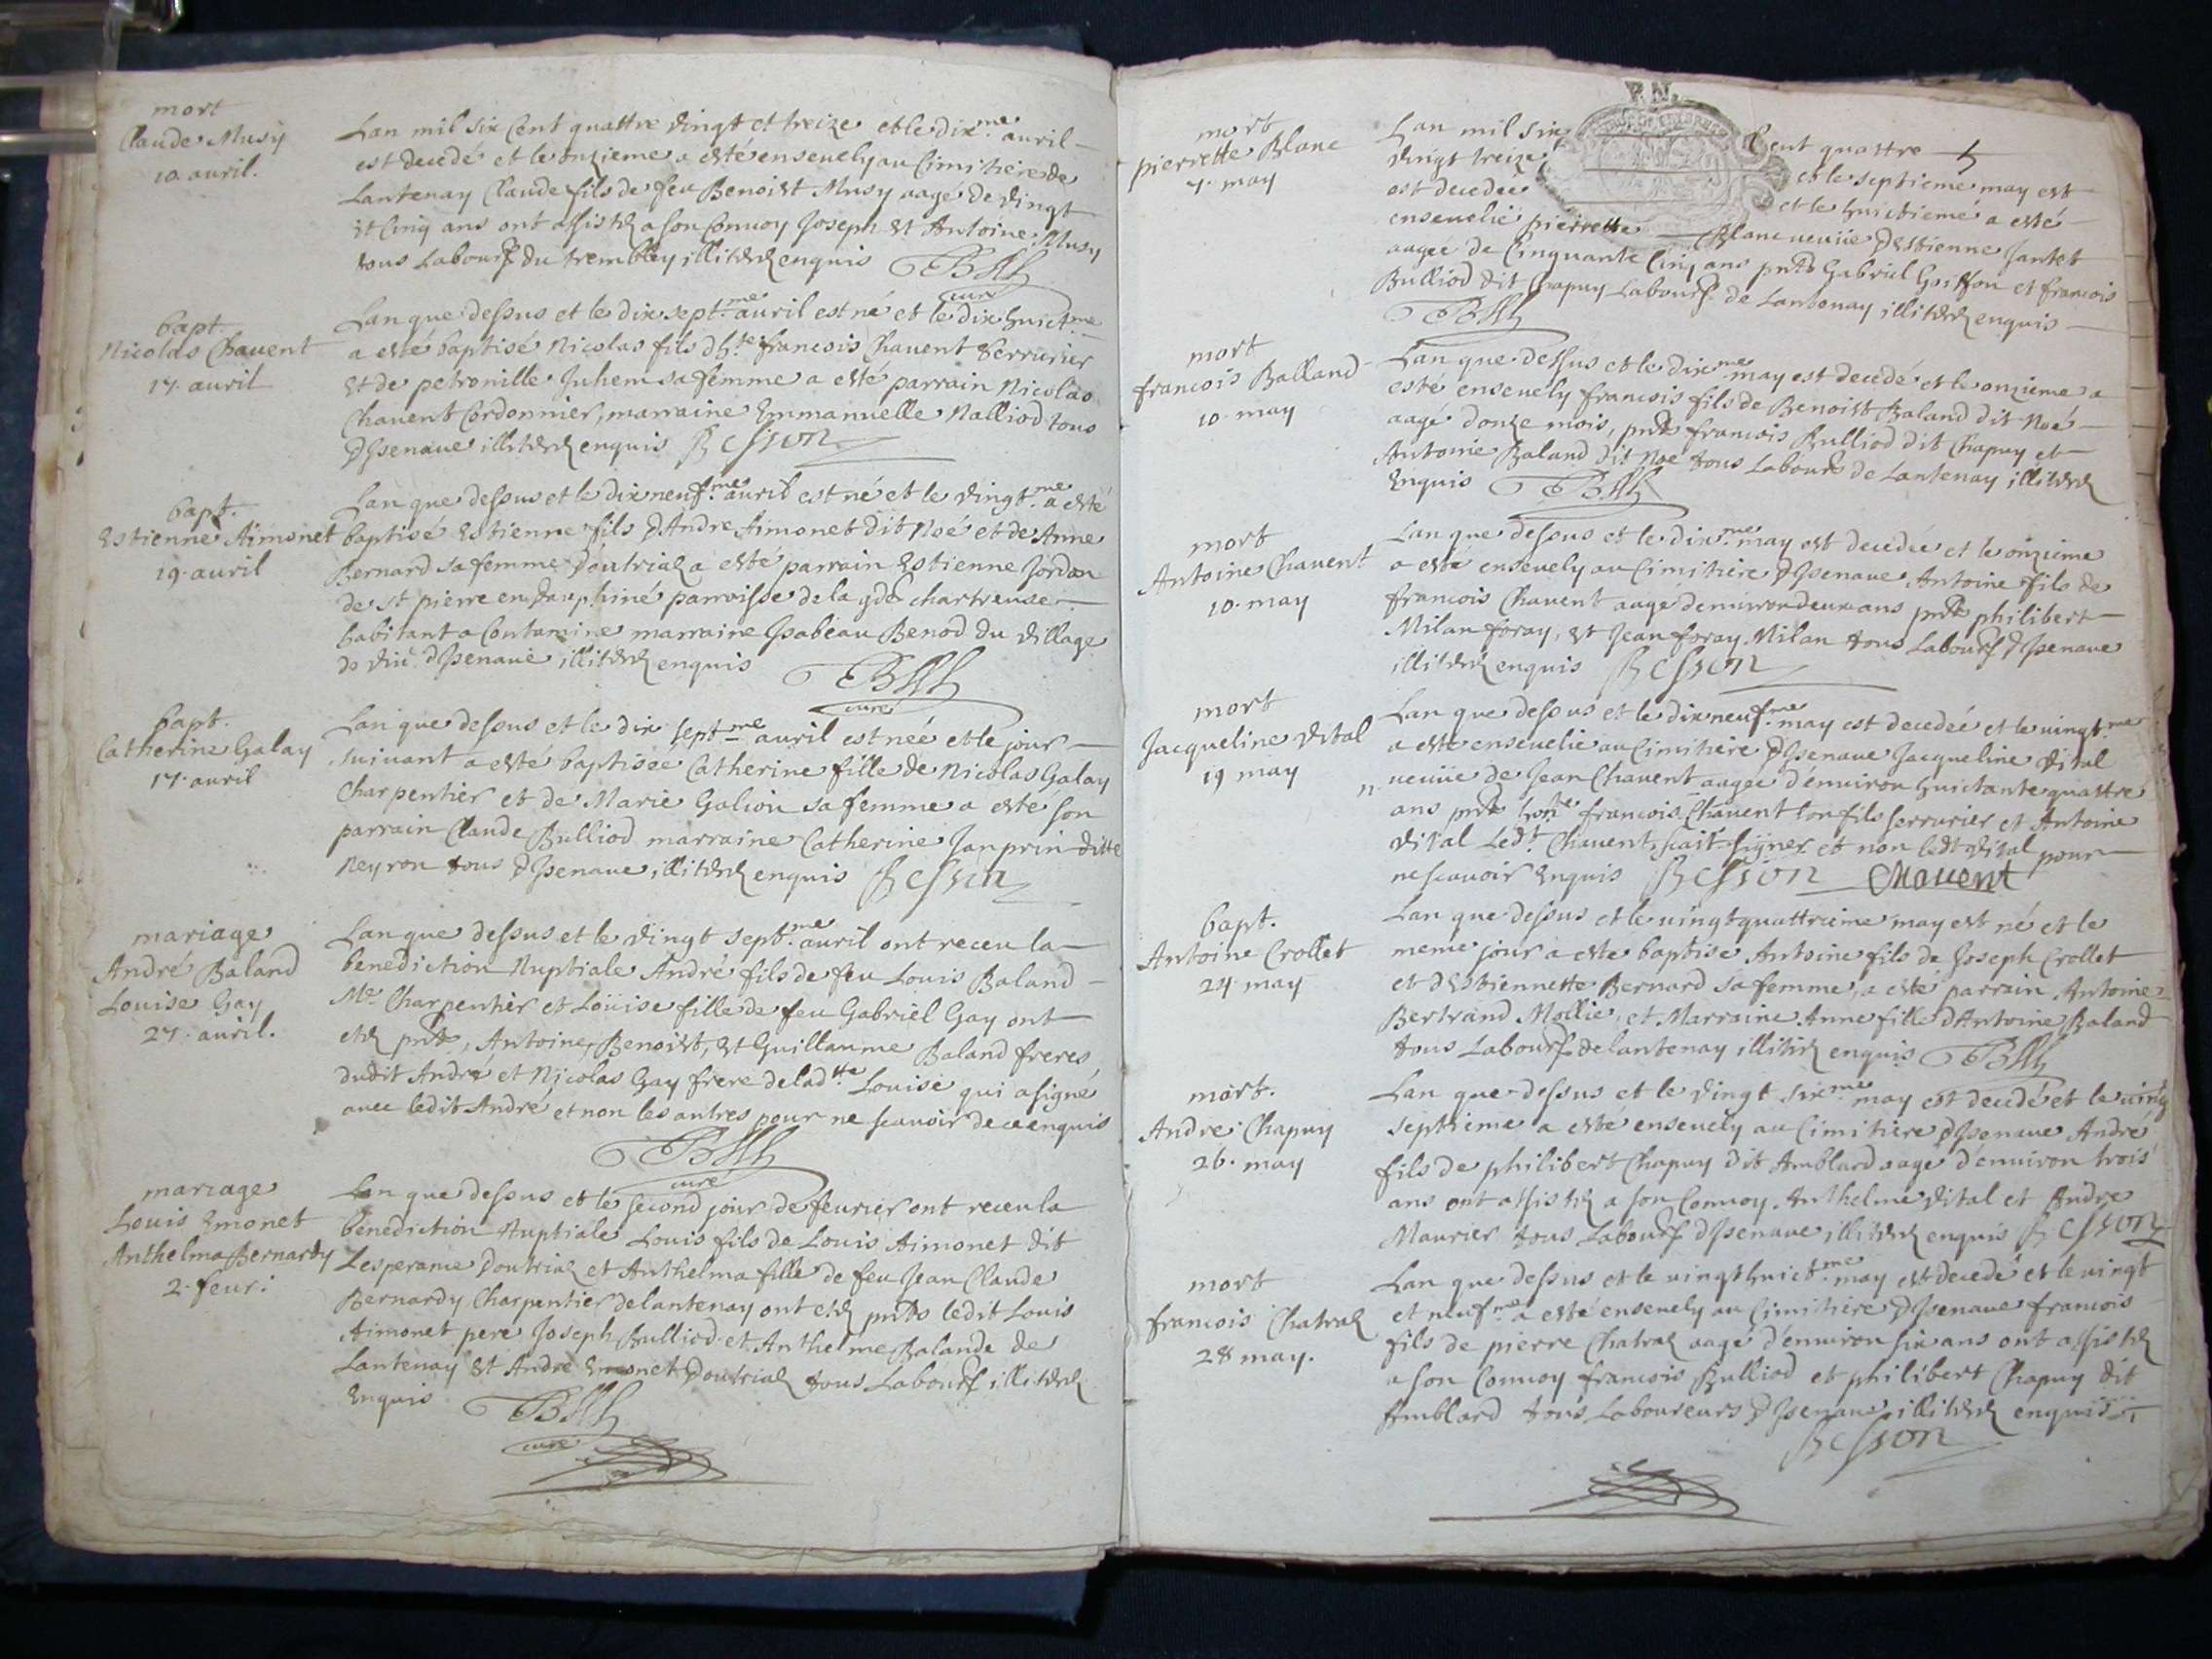 mort
Claude Musy
10 auril.
Lan mil six Cent quattre vingt et treize et le dix.me auril
est decedé et le onzieme a esté enseuely au Cimitiere de
Lantenay Claude fils de feu Benoist Musy aagé de vingt
et Cinq ans ont assistez a son Conuoy Joseph et Antoine Musy
tous Labour.s du tremblay illiterez enquis
curé
bapt.
Nicolas Chauent
17. auril
Lan que dessus et le dix sept.me auril est né et le dix huict.me
a esté baptisé Nicolas fils d'h.te francois Chauent Serrurier
et de petronille Juhem sa femme a esté parrain Nicolas
Chauent Cordonnier, marraine Emmanuelle Nalliod tous
d'Isenaue illiterez enquis Besson
bapt.
Estienne Aimonet
19. auril
Lan que dessus et le dix neuf.me auril est né et le vingt.me a esté
baptisé Estienne fils d'Andre Aimonet dit Noé et de Anne
Bernard sa femme d'outriaz a esté parrain Estienne Jordan
de st pierre en Dauphiné parroisse de la gde chartreuse
habitant a Contamine marraine Isabeau Benod du village
d'Isenaue illiterez enquis
curé
bapt.
Catherine Galay
17. auril
Lan que dessus et le dix sept.me auril est née et le jour
suiuant a esté baptisée Catherine fille de Nicolas Galay
Charpentier et de Marie Galion sa femme a esté son
parrain Claude Bulliod marraine Catherine Janprin ditte
Neyron tous d'Isenaue illiterez enquis Besson
mariage
André Baland
Louise Gay
27. auril.
Lan que dessus et le vingt sept.me auril ont receu la
benediction Nuptiale André fils de feu Louis Baland
Me Charpentier et Loüise fille de feu Gabriel Gay ont
etez pnts, Antoine, Benoist, et Guillaume Baland freres
dudit Andre et Nicolas Gay frere de lad.tte Louise qui a signé
auec ledit André et non les autres pour ne scauoir de ce enquis
curé
mariage
Louis Emonet
Anthelma Bernardy
2. feur:
Lan que dessus et le second jour de feurier ont receu la
benediction Nuptiale Louis fils de Louis Aimonet dit
Lesperance d'outriaz et Anthelma fille de feu Jean Claude
Bernardy Charpentier de lantenay ont etez pnts ledit Louis
Aimonet pere Joseph Bulliod et Anthelme Balande de
Lantenay et André Emonet d'outriaz tous Labour.s illiterez
Enquis
curé
mort
pierrette Blanc
7. may
Lan mil six Cent quattre
vingt treize et le septieme may est
est decedee et le huictieme a esté
enseuelie pierrette Blanc ueuüe d'Estienne Jantet
aagee de Cinquante Cinq ans pnts Gabriel Goiffon et francois
Bulliod dit Chapuy Labour.s de Lantenay illiterez enquis
mort
francois Balland
10. may
Lan que dessus et le dix.me may est decedé et le onzieme a
esté enseuely francois fils de Benoist Baland dit Noé
aagé d'onze mois, pnts francois Bulliod dit Chapuy et
Antoine Baland dit Noe tous Labour.s de Lantenay illiterez
Enquis
mort
Antoine Chauent
10. may
Lan que dessus et le dix.me may est decedée et le onzieme
a esté enseuely au Cimitiere d'Isenaue Antoine fils de
francois Chauent aagé d'enuiron deux ans pnts philibert
Milan foray, et Jean foray Milan tous Labour.s d'Isenaue
illiterez enquis Besson
mort
Jacqueline Vital
19 may
Lan que dessus et le dix neuf.me may est decedeé et le uingt.me
a esté enseuelie au Cimitiere d'Isenaue Jacqueline Vital
ueuüe de Jean Chauent aagee d'enuiron huictante quattre
ans pnts hon.te francois Chauent son fils serrurier et Antoine
Vital Led.t Chauent scait signer et non ledt Vital pour
ne scauoir Enquis Besson Chauent
bapt.
Antoine Crollet
24. may
Lan que dessus et le uingt quattrieme may est né et le
meme jour a esté baptisé Antoine fils de Joseph Crollet
et d'Estiennette Bernard sa femme, a esté parrain Antoine
Bertrand Mollie, et Marraine Anne fille d'Antoine Baland
tous Labour.s de lantenay illitez enquis
mort.
André Chapuy
26. may
Lan que dessus et le vingt six.me may est decedé et le uingt
septieme a esté enseuely au Cimitiere d'Isenaue André
fils de philibert Chapuy dit Amblard aagé d'enuiron trois
ans ont assistez a son Conuoy Anthelme Vital et Andre
Maurier tous Labour.s d'Isenaue illiterez enquis Besson
mort
francois Chatraz
28 may.
Lan que dessus et le uingt huict.me may est decedé et le uingt
et neuf.me a esté enseuely au Cimitiere d'Isenaue francois
fils de pierre Chatraz aagé d'enuiron six ans ont assistez
a son Conuoy francois Bulliod et philibert Chapuy dit
Amblard tous Laboureurs d'Isenaue illiterez enquis
Besson